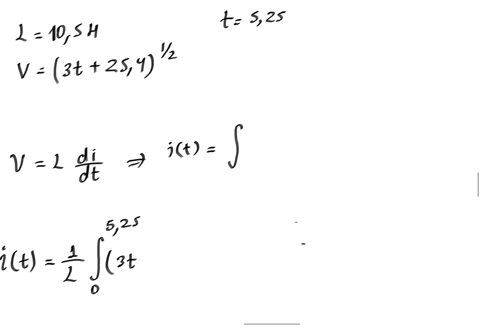 L = 10,5 H
t = 5,25
V = (3t + 25,4)^1/2
V = L di/dt ⇒ i(t) = ∫
i(t) = 1/L ∫_0^5,25 (3t